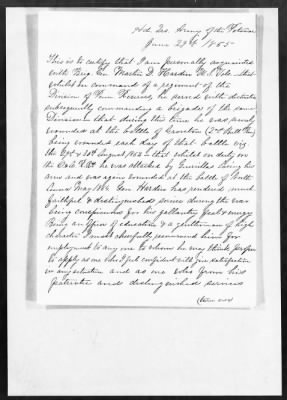 Hd. Qrs. Army of the Potomac
June 29th 1865
This is to certify that I am personally acquainted
with Brig. Gen. Martin D. Hardin U.S. Vols. that
whilst in command of a regiment of the
Division of Penn Reserves, he served with distinction
subsequently commanding a brigade of the same
Division that during the time he was severely
wounded at the battle of (2nd Bull Run)
being wounded each day of that battle viz.
the 29th & 30th August 1862 that whilst on duty on
the he was attacked by Guerillas losing his
arm and was again wounded at the battle of North
Anna May 1864. Gen Hardin has rendered much
faithful & distinguished service during the war
being conspicuous for his gallantry zeal & energy
Being an officer of education & a gentleman of high
character I most cheerfully recommend him for
employment to any one to whom he may think proper
to apply as one who I feel confident will give satisfaction
in any situation and as one who from his
patriotic and distinguished services
(turn over)